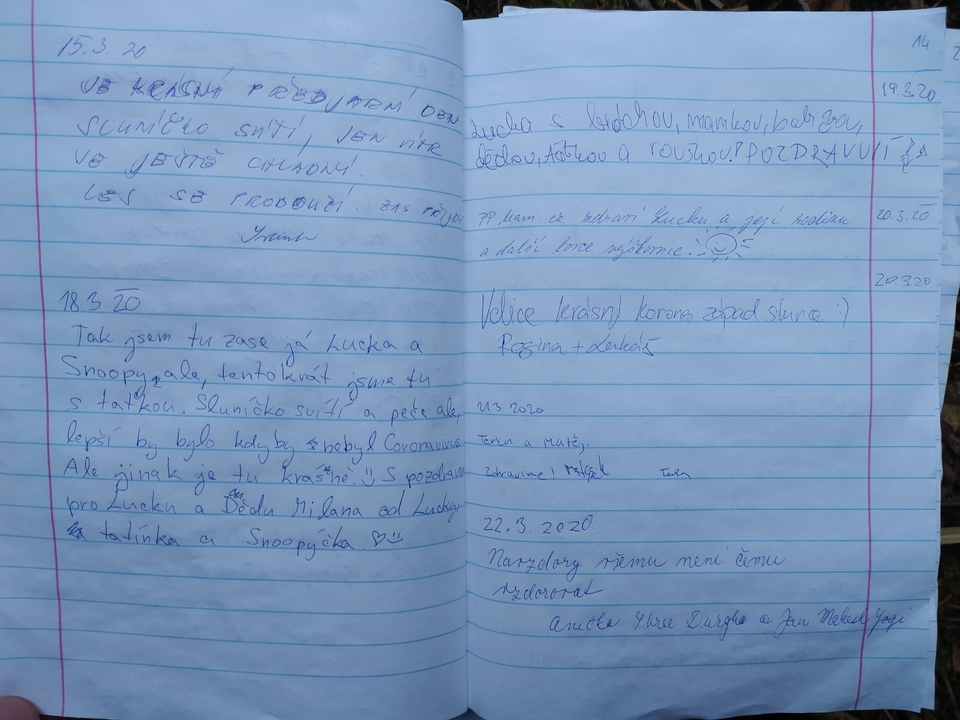 15.3.20
JE KRÁSNÝ PŘEDJARNÍ DEN
SLUNÍČKO SVÍTÍ, JEN
JE JEŠTĚ CHLADNÝ.
LES SE PROBOUZÍ. ZAS
18.3.20
Tak jsem tu zase já Lucka a
Snoopy, ale, tentokrát jsme tu
s taťkou. Sluníčko svítí a peče ale,
lepší by bylo kdyby nebyl Coronavirus
Ale jinak je tu krásně S pozdravem
pro Lucku a Dědu Milana od Lucky,
tatínka a Snoopýčka ♡
14
19.3.20
Lucka s bráchou, mamkou, babičkou,
dědou, taťkou a rouškou? POZDRAVUJÍ
20.3.20
PP kam až zdraví Lucku a její rodinu
a další lovce
20.3.20
Velice krásný korona západ slunce :)
Regina + Lukáš
21.3.2020
Terka a Matěj.
Zdravíme!
22.3.2020
Navzdory všemu není čemu
vzdorovat
Anička Shree Durgha a Jan Mahesh Yogi